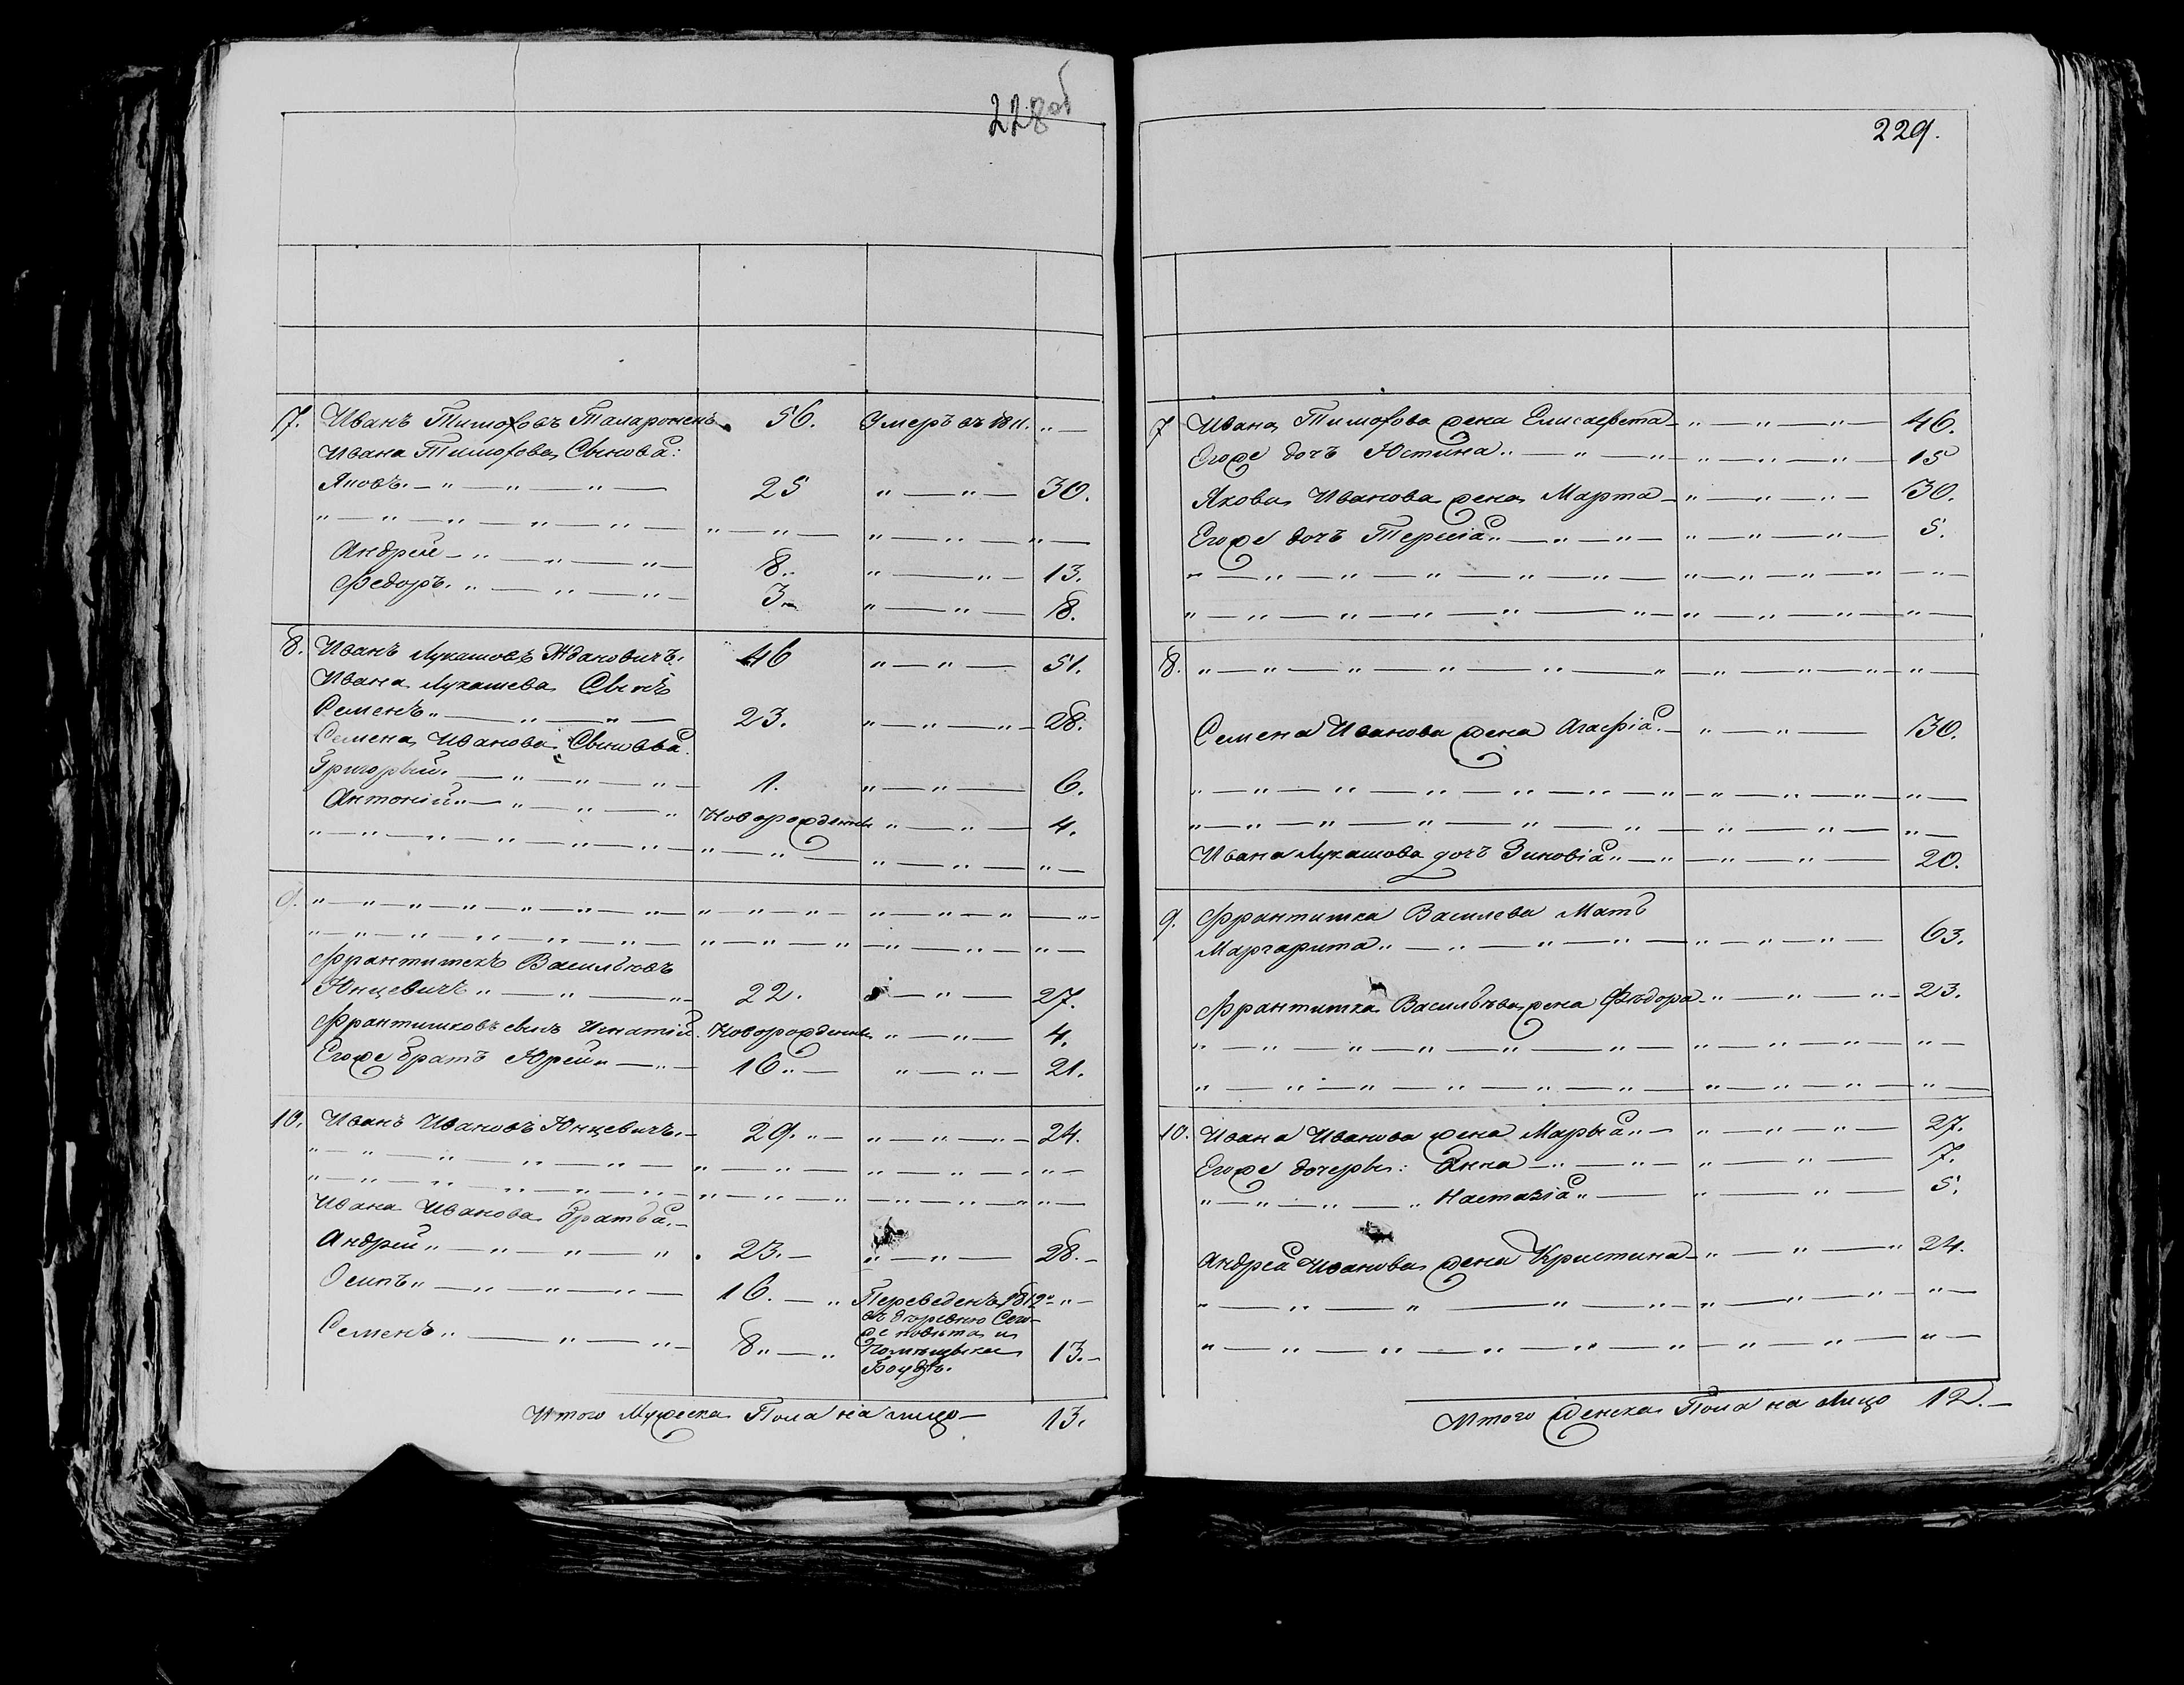 228об
7. Иванъ Тимофовъ Таларонекъ. 56. Умеръ въ 1811. " —
Ивана Тимофова Сынова:
Яковъ. — " — " — " — 25 " — " — 30.
" — " — " — " — " — " — " — " — " — " — " —
Андрей — " — " — " — 8. " — " — 13.
Федоръ. " — " — " — 3. " — " — 8.
8. Иванъ Лукашовъ Ждановичъ. 46 " — " — 51.
Ивана Лукашева Сынъ
Семенъ " — " — " — 23. " — " — " — 28.
Семена Иванова Сыновья
Григорьей. — " — " — " — 1. " — " — 6.
Антоній " — " — " — " Новорожденны " — " — 4.
" — " — " — " — " — " — " — " — " — " — " —
9. " — " — " — " — " — " — " — " — " — " — " — " — " —
" — " — " — " — " — " — " — " — " — " — " — " —
Франтишекъ Васильювъ
Юнцевичъ " — " — " — 22. " — " — 27.
Франтишковъ сынъ Игнатій. Новорожденны " — " — 4.
Егоже братъ Юрей " — " — 16. " — " — " — 21.
10. Иванъ Ивановъ Юнцевичъ. — 29. " — " — " — " — 24.
" — " — " — " — " — " — " — " — " — " — " —
" — " — " — " — " — " — " — " — " — " — " — " —
Ивана Иванова братья. —
Андрей " — " — " — " . 23. — " — " — 28. —
Осипъ " — " — " — " — 16. — " Переведенъ 1812го " —
въ дѣревню Сего-
же повѣта и
Семенъ " — " — " — 8 " — " Помѣщыка 13. —
Итого Мужеска Пола на лицо — 13.
229.
7 Ивана Тимофова жена Елисавета — " — " — " — 46.
Егоже дочъ Юстина " — " — " — " — " — " — 15
Якова Иванова жена Марта — " — " — " — 30.
Егоже дочъ Тереиа " — " — " — " — " — " — 5.
" — " — " — " — " — " — " — " — " — " — " — " —
" — " — " — " — " — " — " — " — " — " — " —
8. " — " — " — " — " — " — " — " — " — " — " —
Семена Иванова жена Агафіа. — " — " — 30.
" — " — " — " — " — " — " — " — " — " — " — " —
" — " — " — " — " — " — " — " — " — " —
Ивана Лукашова дочъ Зиновіа " — " — " — " — 20.
9. Франтишка Василева Мать
Маргарита " — " — " — " — " — " — " — 63.
Франтишка Васильѣва жена Фѣдора — " — " — " — 23.
" — " — " — " — " — " — " — " — " — " — " —
" — " — " — " — " — " — " — " — " — " — " —
10. Ивана Иванова жена Марыа " — " — " — " — 27.
Егоже дочеры: Анна — " — " — " — " — 7.
" — " — " — " Настазіа " — " — " — 5.
Андреа Иванова жена Кристина — " — " — " 24.
" — " — " — " — " — " — " — " — " —
" — " — " — " — " — " — " — " — " — " —
Итого Женска Пола на Лицо 12. —